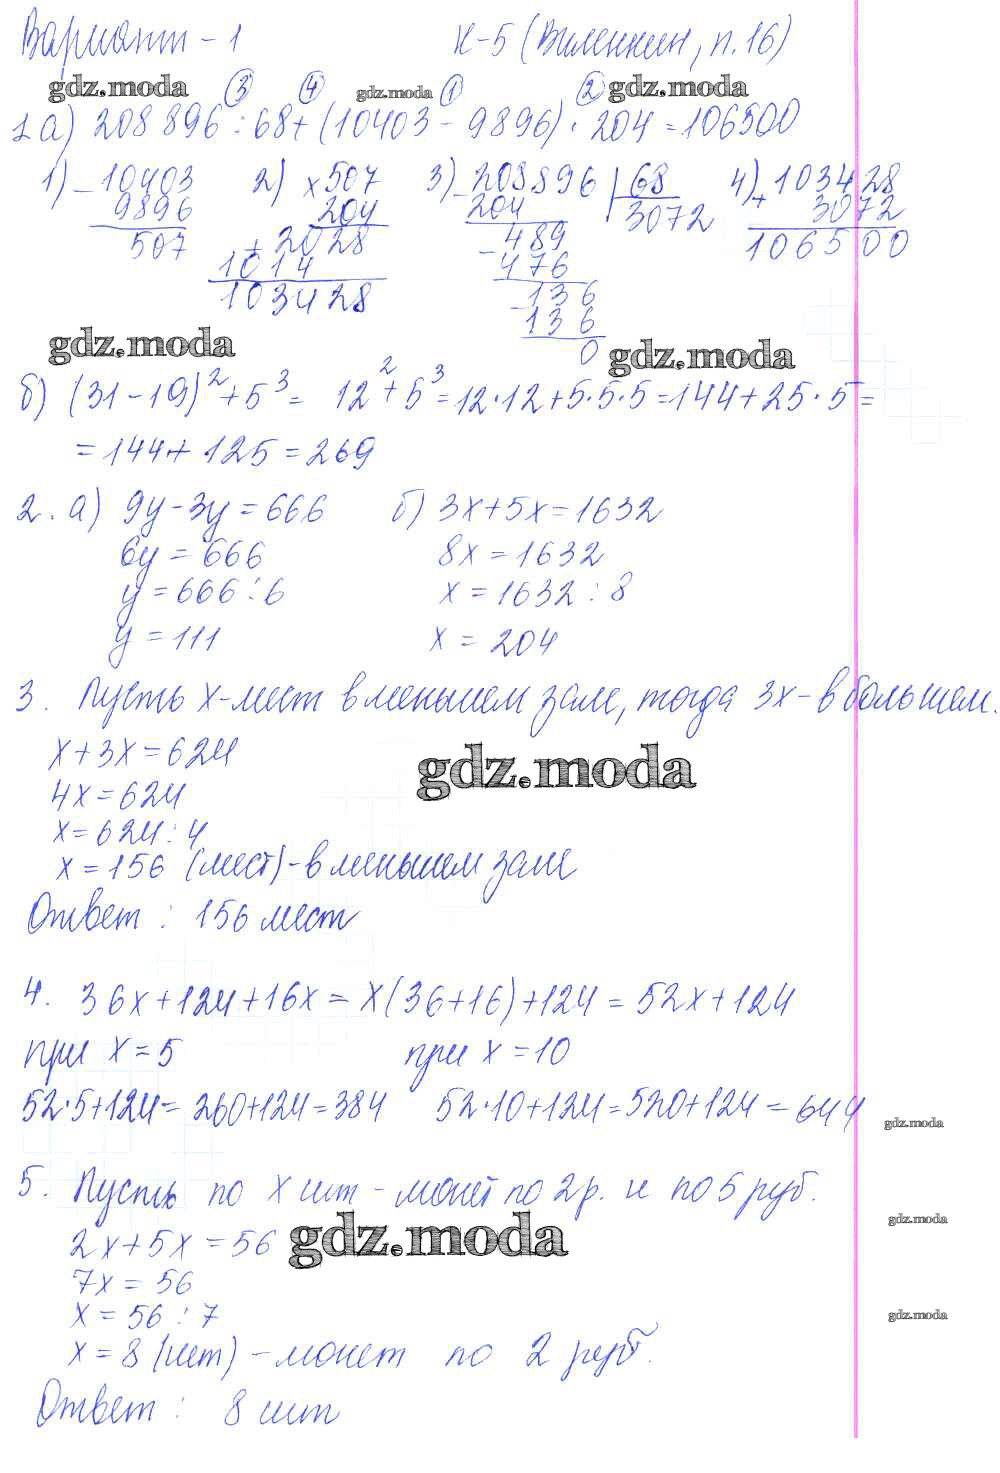 Вариант - 1 К-5 (Виленкин, п.16)
gdz.moda ③ ④ gdz.moda ① ② gdz.moda
1 а) 208 896 : 68 + (10403 - 9896) · 204 = 106500
1) - 10403 2) × 507 3) - 208896 | 68 4) + 103428
9896 204 204 3072 3072
507 + 2028 489 106500
1014 - 476
103428 136
- 136
0
gdz.moda gdz.moda
б) (31 - 19)² + 5³ = 12² + 5³ = 12·12 + 5·5·5 = 144 + 25·5 =
= 144 + 125 = 269
2. а) 9y - 3y = 666 б) 3x + 5x = 1632
6y = 666 8x = 1632
y = 666 : 6 x = 1632 : 8
y = 111 x = 204
3. Пусть x - мест в меньшем зале, тогда 3x - в большем.
x + 3x = 624
gdz.moda
4x = 624
x = 624 : 4
x = 156 (мест) - в меньшем зале
Ответ : 156 мест
4. 36x + 124 + 16x = x(36 + 16) + 124 = 52x + 124
при x = 5 при x = 10
52·5 + 124 = 260 + 124 = 384 52·10 + 124 = 520 + 124 = 644
gdz.moda
5. Пусть по x шт - монет по 2 р. и по 5 руб.
gdz.moda gdz.moda
2x + 5x = 56
7x = 56
x = 56 : 7
gdz.moda
x = 8 (шт) - монет по 2 руб.
Ответ : 8 шт